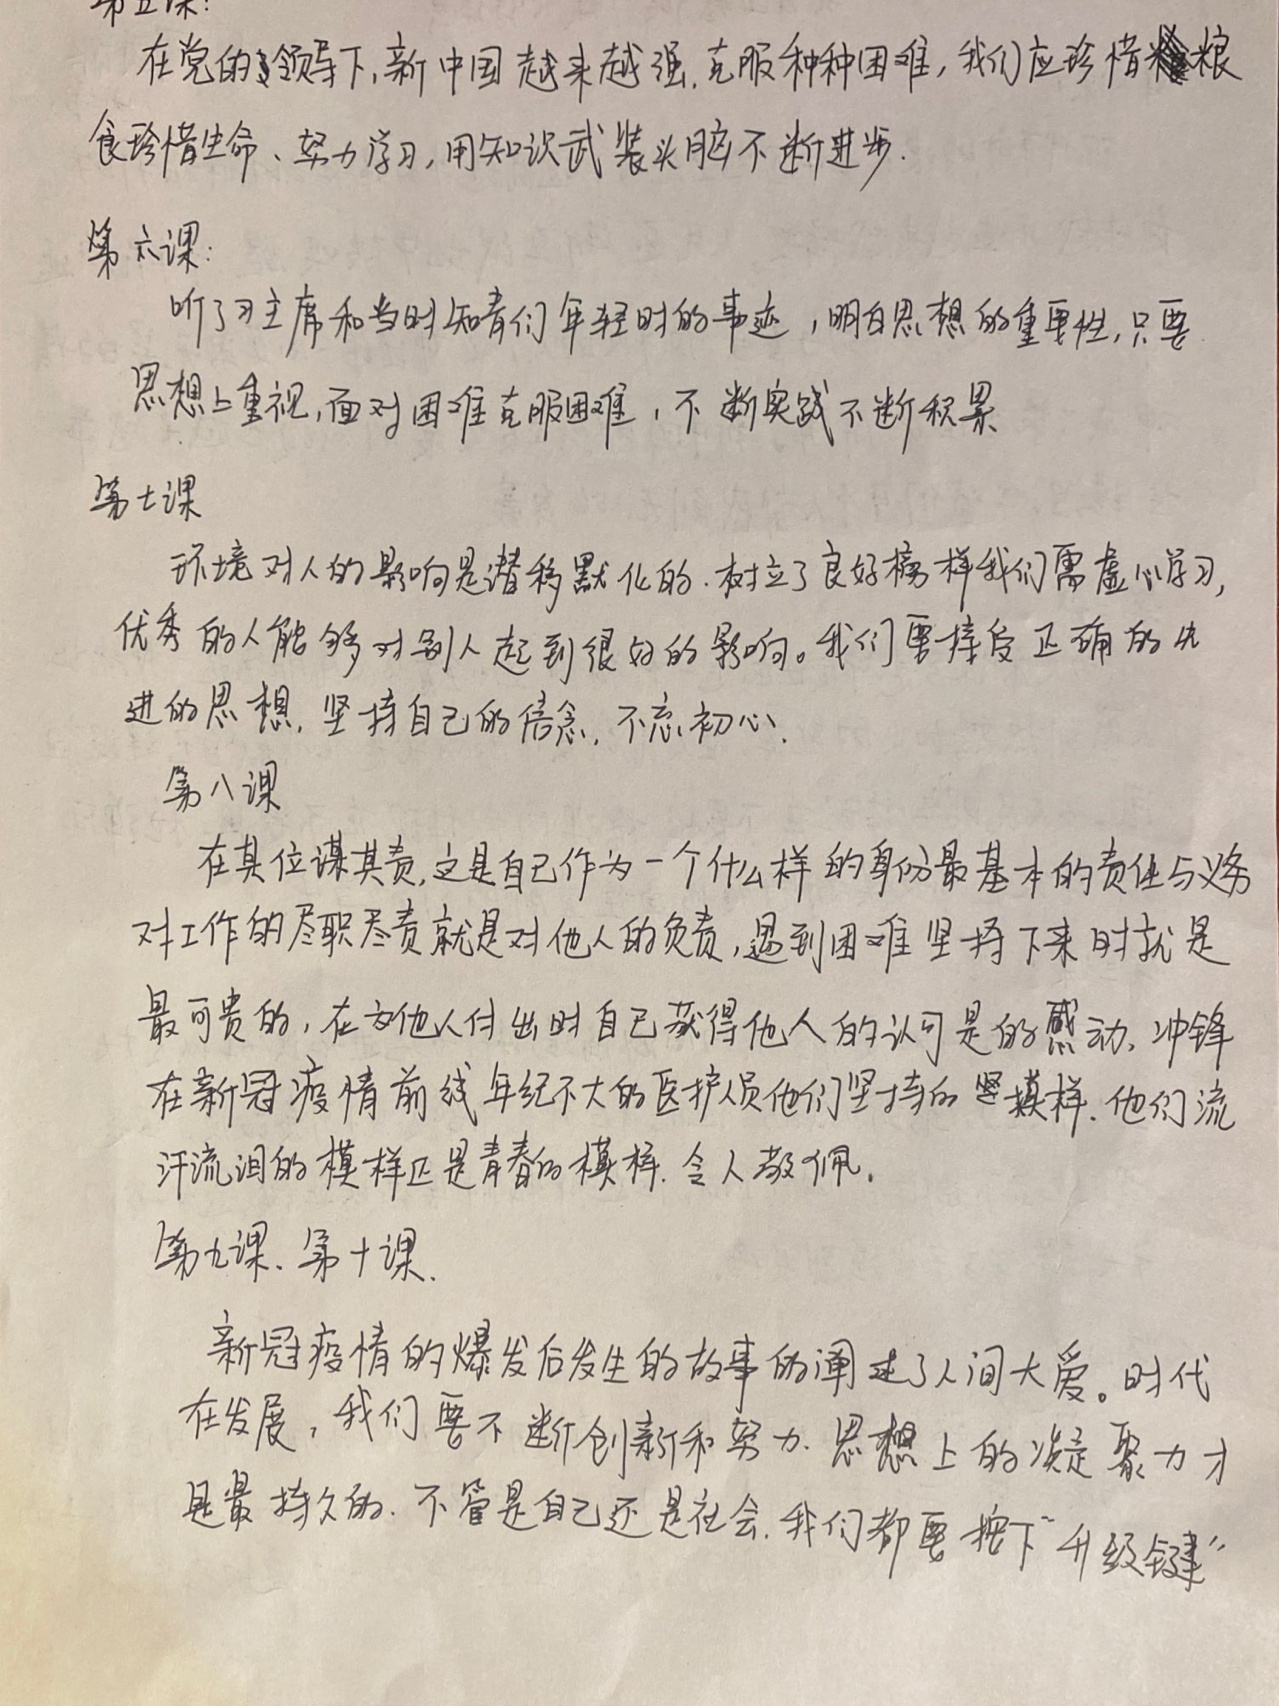 第五课:
在党的领导下,新中国越来越强.克服种种困难,我们应珍惜粮
食珍惜生命、努力学习,用知识武装头脑不断进步.
第六课:
听了习主席和当时知青们年轻时的事迹,明白思想的重要性,只要
思想上重视,面对困难克服困难,不断实践不断积累
第七课
环境对人的影响是潜移默化的.树立了良好榜样我们需虚心学习,
优秀的人能够对别人起到很好的影响。我们要接受正确的先
进的思想.坚持自己的信念.不忘初心.
第八课
在其位谋其责,这是自己作为一个什么样的身份最基本的责任与义务
对工作的尽职尽责就是对他人的负责,遇到困难坚持下来时就是
最可贵的,在为他人付出时自己获得他人的认可是的感动、冲锋
在新冠疫情前线年纪不大的医护人员他们坚持的模样.他们流
汗流泪的模样正是青春的模样.令人敬佩.
第九课、第十课.
新冠疫情的爆发后发生的故事的阐述了人间大爱。时代
在发展,我们要不断创新和努力.思想上的凝聚力才
是最持久的.不管是自己还是社会.我们都要按下“升级键”